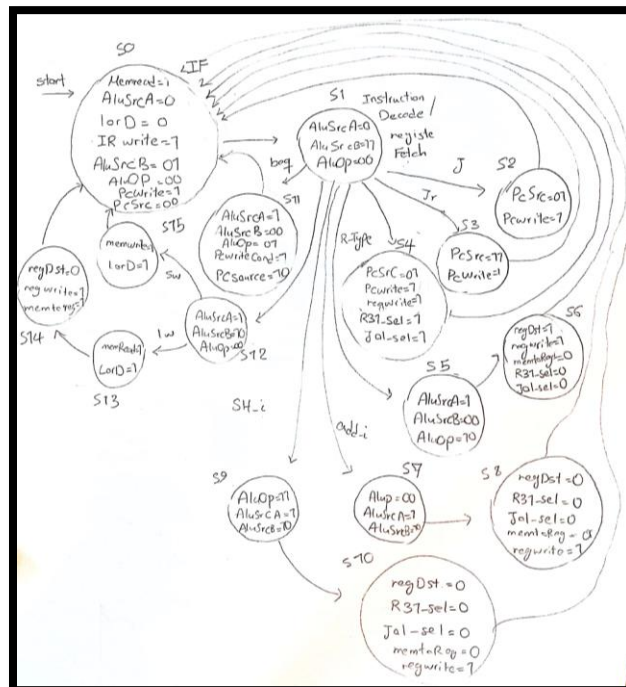 start
S0
IF
Memread=1
AluSrcA=0
IorD=0
IR write=1
AluSrcB=01
AluOP=00
Pcwrite=1
PcSrc=00
S1
Instruction
Decode/
registe
Fetch
AluSrcA=0
AluSrcB=11
AluOp=00
beq
J
Jr
R-Type
S2
PcSrc=01
Pcwrite=1
S3
PcSrc=11
PcWrite=1
S4
PcSrC=01
Pcwrite=1
regwrite=1
R31-sel=1
Jal-sel=1
S11
AluSrcA=1
AluSrcB=00
AluOp=01
PcwriteCond=1
PCsource=10
S15
memwrite=1
IorD=1
sw
S14
regDst=0
regwrite=1
memtoreg=1
S12
AluSrcA=1
AluSrcB=10
AluOp=00
lw
S13
memRead=1
IorD=1
S5
AluSrcA=1
AluSrcB=00
AluOp=10
S6
regDst=1
regwrite=1
memtoReg=0
R31-sel=0
Jal-sel=0
SH_i
add_i
S9
AluOp=11
AluSrCA=1
AluSrcB=10
S7
Alup=00
AluSrcA=1
AluSrcB=10
S8
regDst=0
R31-sel=0
Jal-sel=0
memtoReg=0
regwrite=1
S10
regDst=0
R31-sel=0
Jal-sel=0
memtoReg=0
regwrite=1